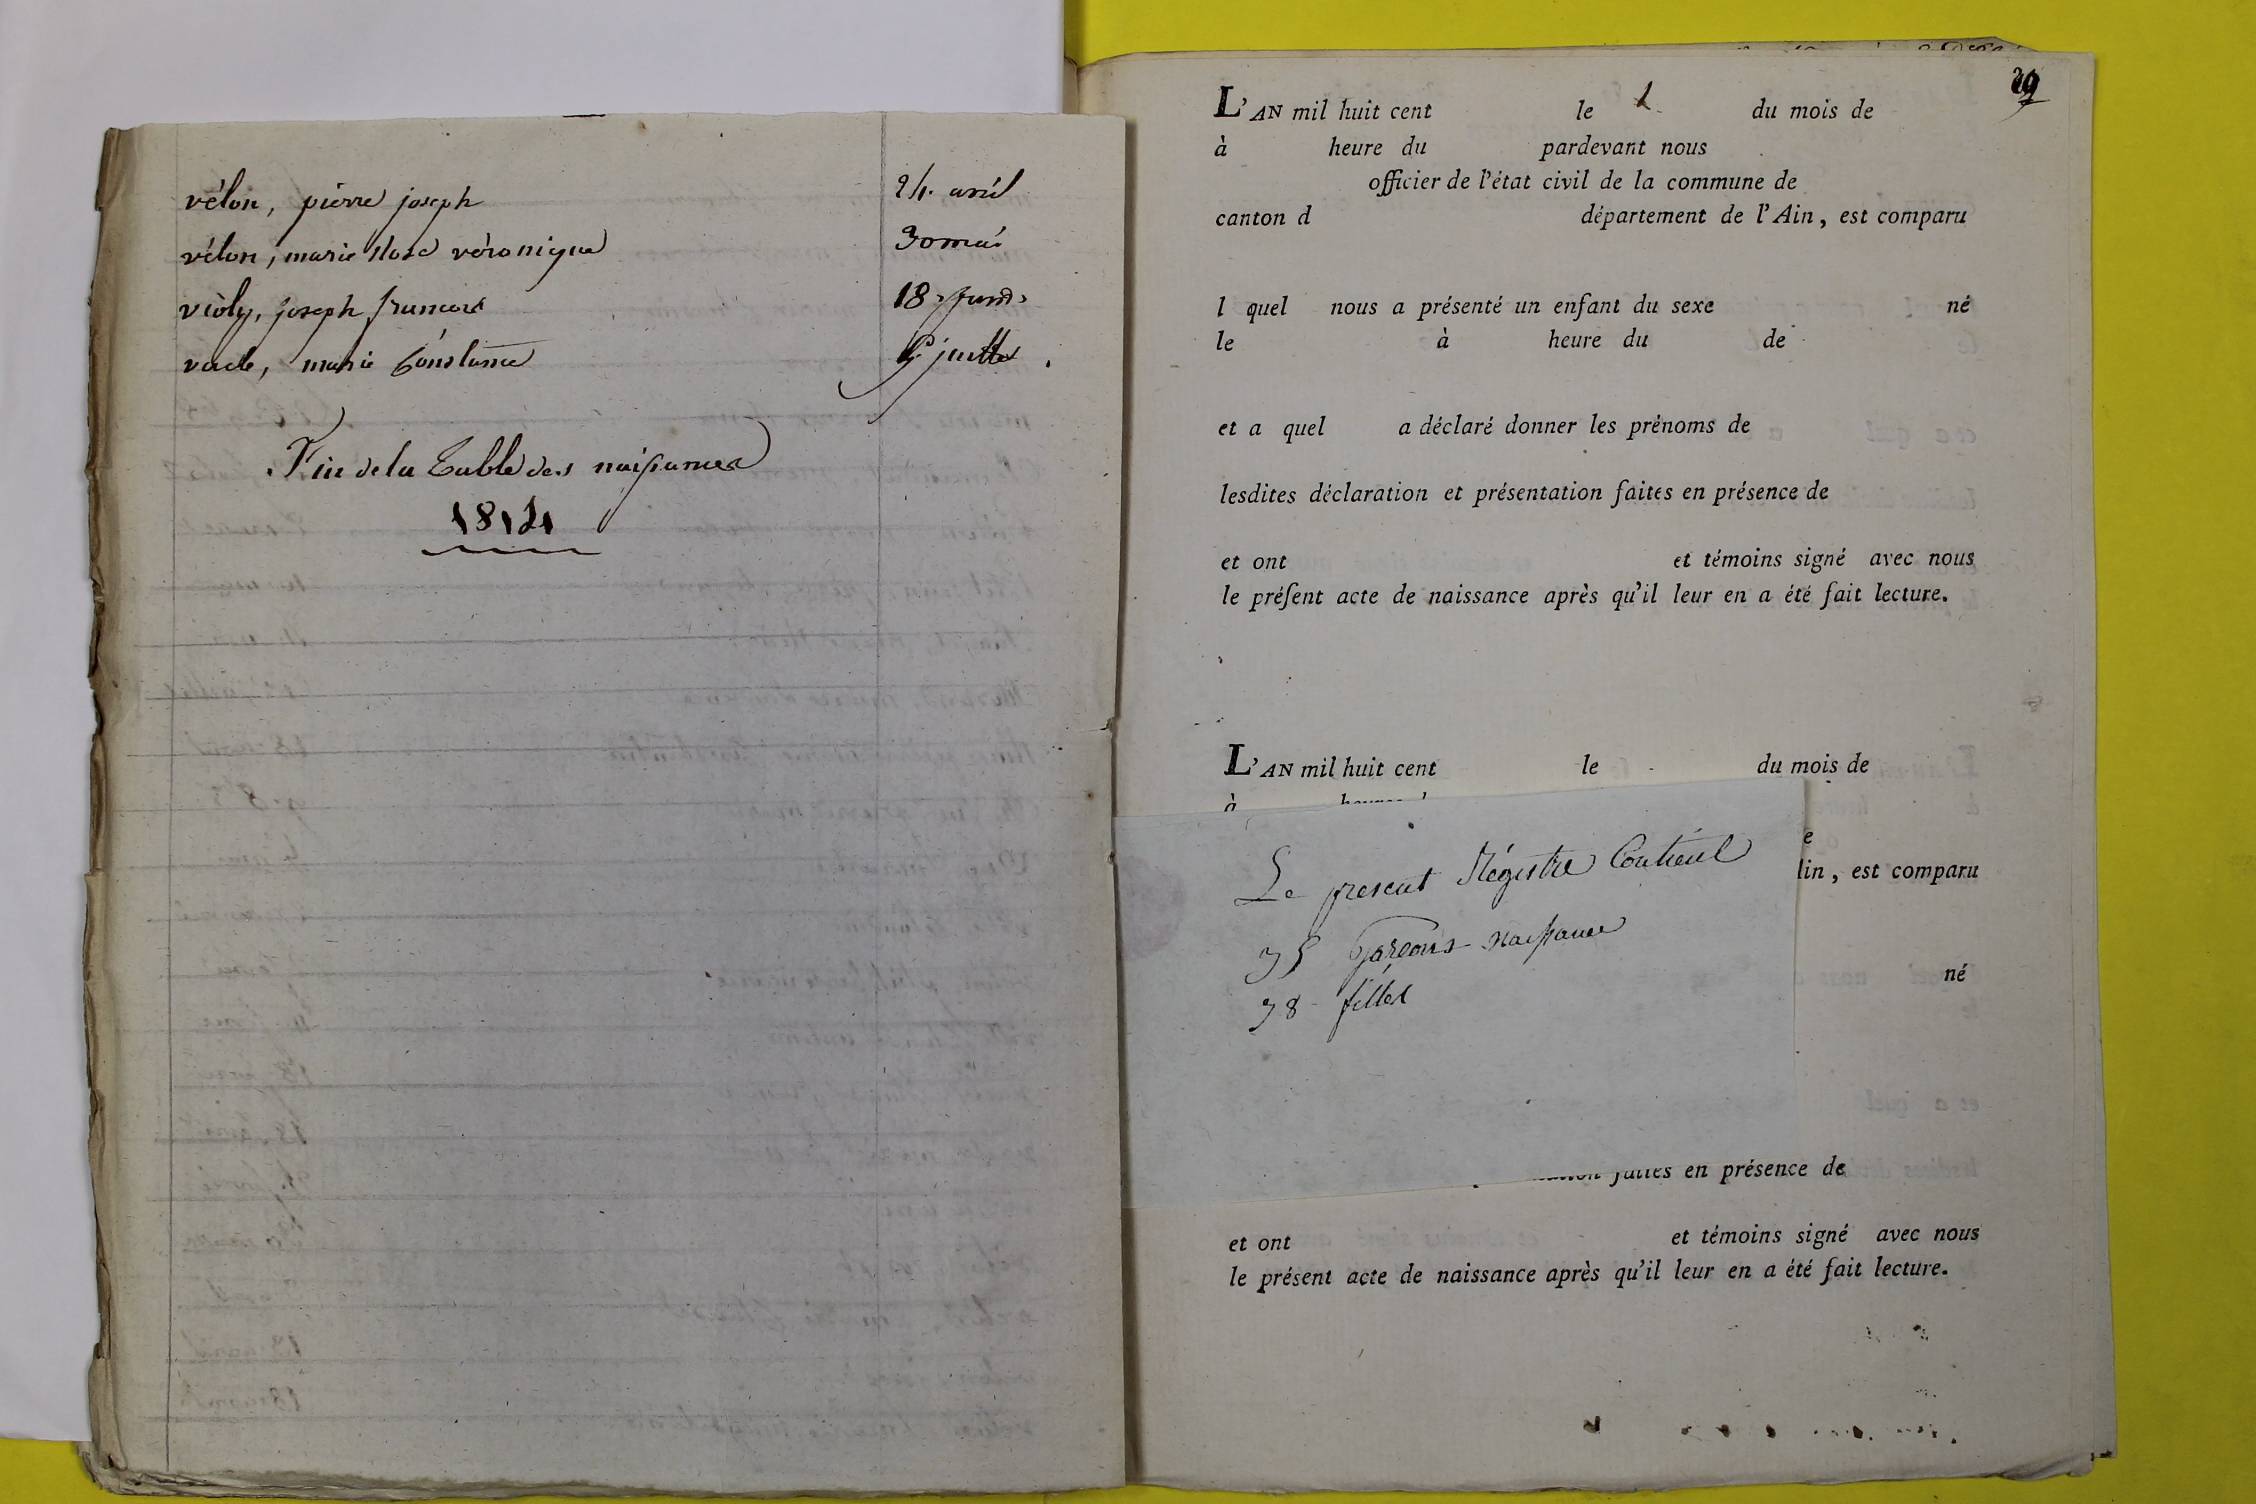 vélon, pierre joseph 24. avril
vélon, marie Rose véronique 30 mai
violy, joseph francois 18
vacle, marie Constance juillet
Fin de la Table des naissances
1814
29
L'AN mil huit cent le du mois de
à heure du pardevant nous
officier de l'état civil de la commune de
canton d département de l'Ain, est comparu
l quel nous a présenté un enfant du sexe né
le à heure du de
et a quel a déclaré donner les prénoms de
lesdites déclaration et présentation faites en présence de
et ont et témoins signé avec nous
le préſent acte de naissance après qu'il leur en a été fait lecture.
L'AN mil huit cent le du mois de
à
e
Ain, est comparu
Le present Régistre Contient
35 garcons naissance
38 filles
né
faites en présence de
et ont et témoins signé avec nous
le présent acte de naissance après qu'il leur en a été fait lecture.